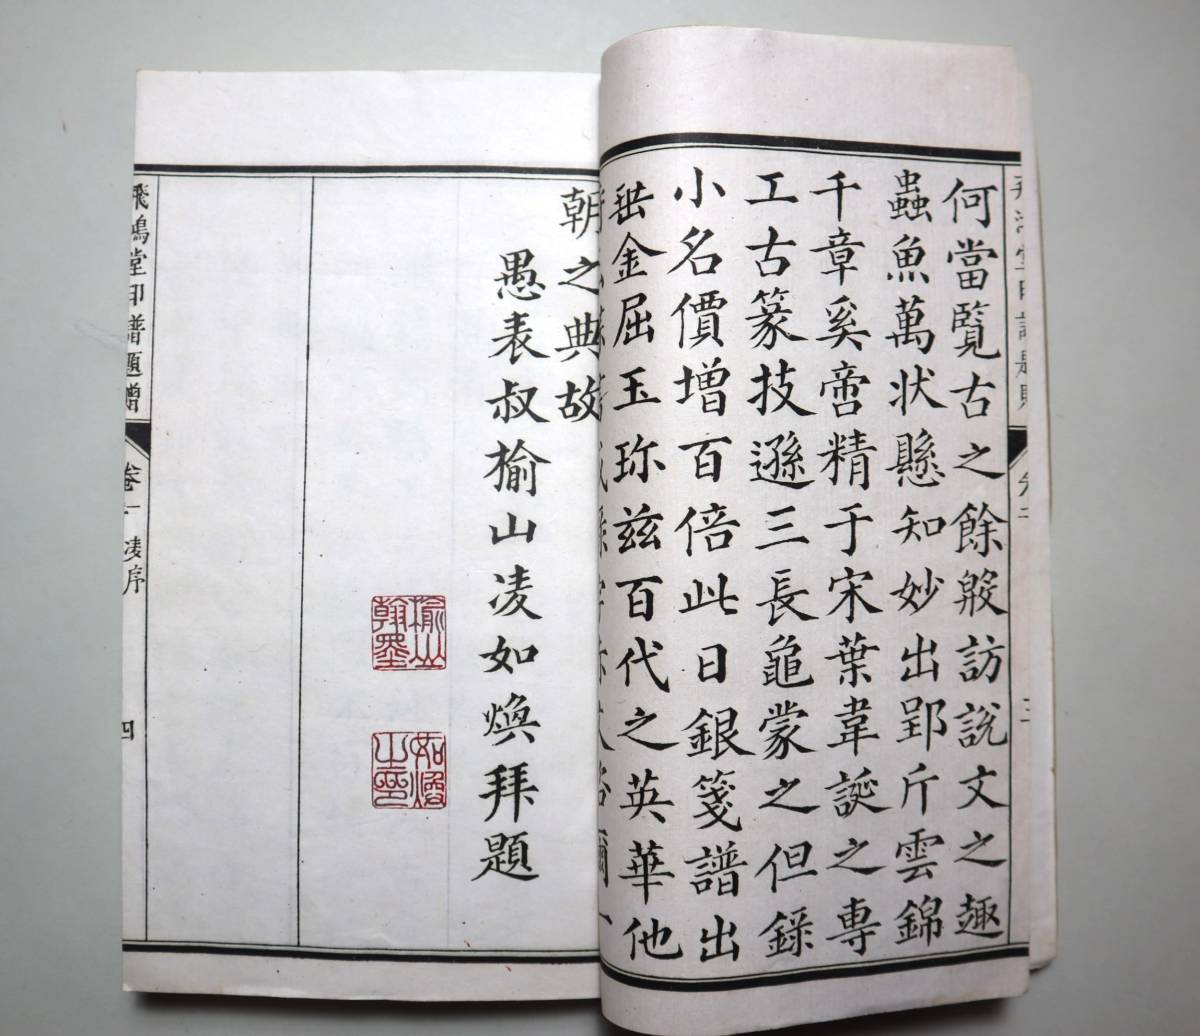 何當覽古之餘殷訪說文之趣
蟲魚萬狀懸知妙出郢斤雲錦
千章奚啻精于宋葉韋誕之專
工古篆技遜三長龜蒙之但錄
小名價增百倍此日銀箋譜出
金屈玉珎兹百代之英華他
朝之典故
愚表叔榆山凌如煥拜題
榆山翰墨
如煥之印
飛鴻堂印譜題贈
卷一
凌序
四